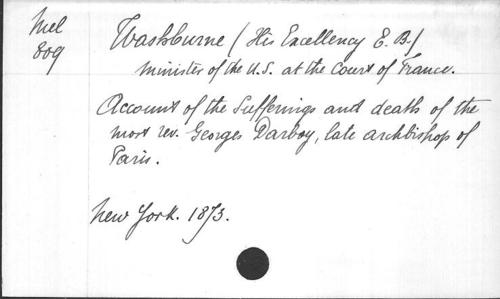 Mel
809
Washburne (His Excellency E. B.)
minister of the U.S. at the Court of France.
Account of the Sufferings and death of the
most rev. Georges Darboy, late archbishop of
Paris.
New York. 1873.